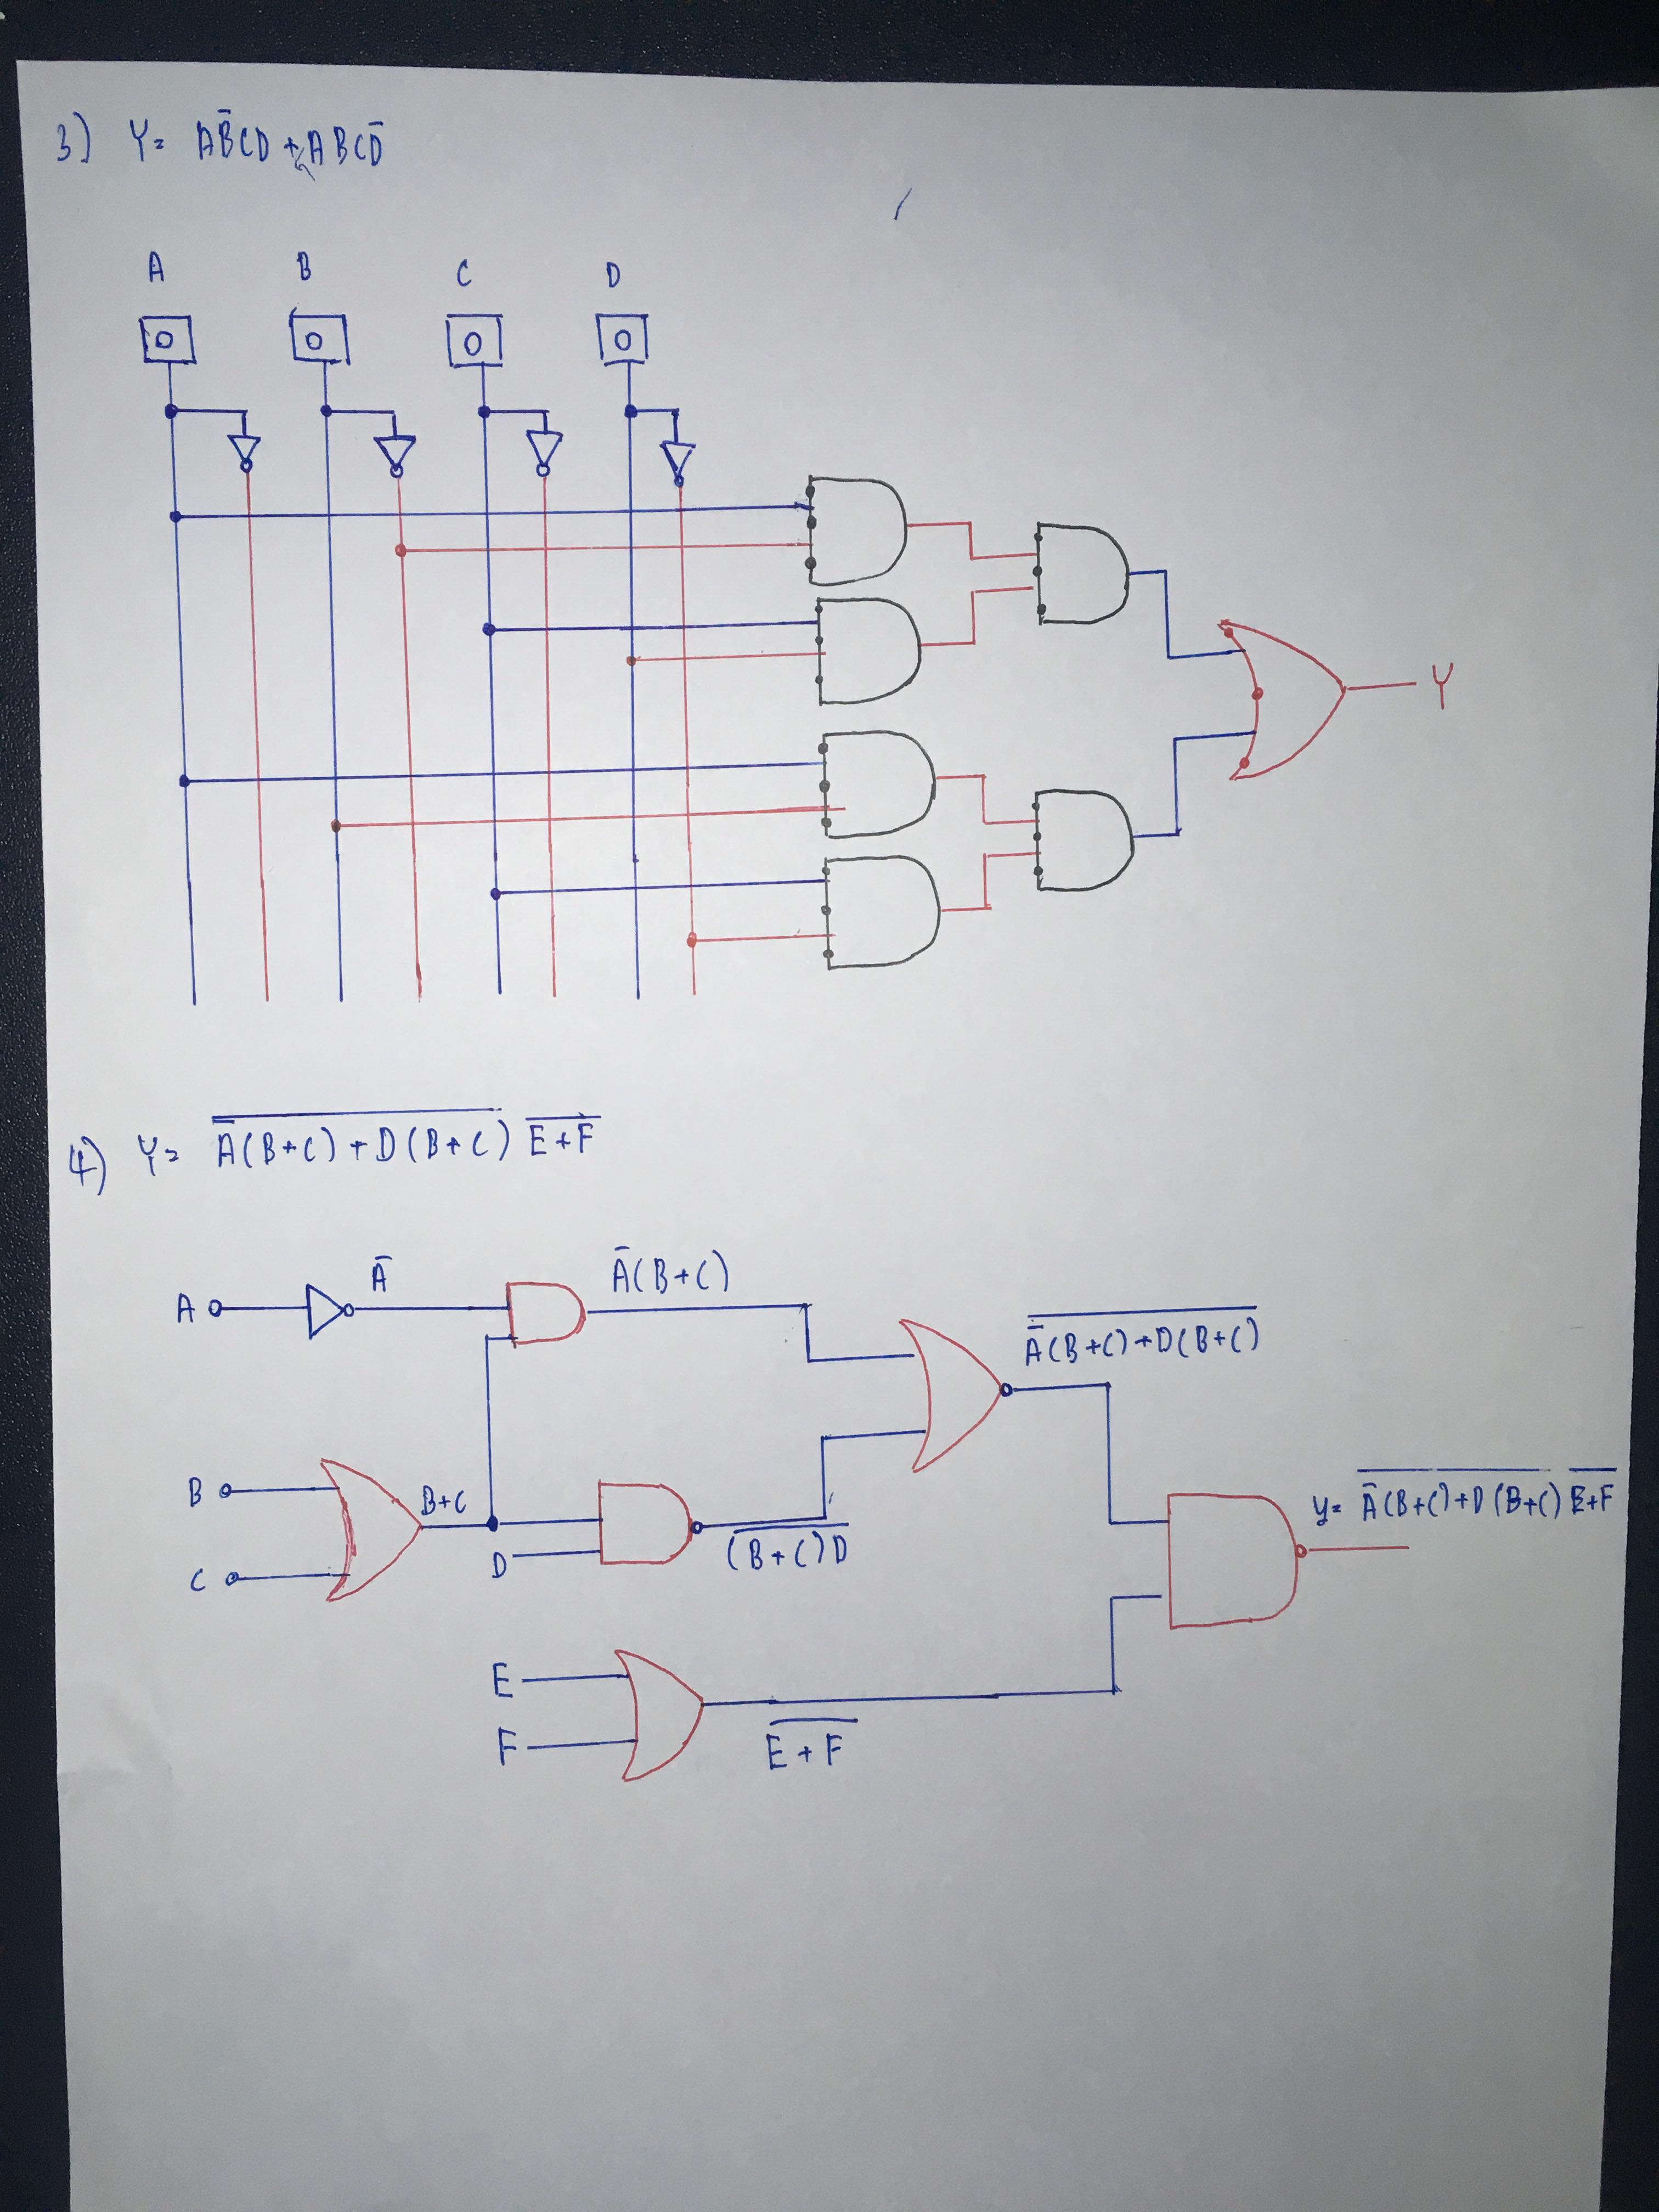 3) Y= AB̅CD + ABCD̅
A B C D
0 0 0 0
Y
4) Y= \overline{A̅(B+C)+D(B+C)} \overline{E+F}
A A̅ A̅(B+C)
\overline{A̅(B+C)+D(B+C)}
B B+C
y= \overline{A̅(B+C)+D(B+C)} \overline{E+F}
C D \overline{(B+C)D}
E
F \overline{E+F}